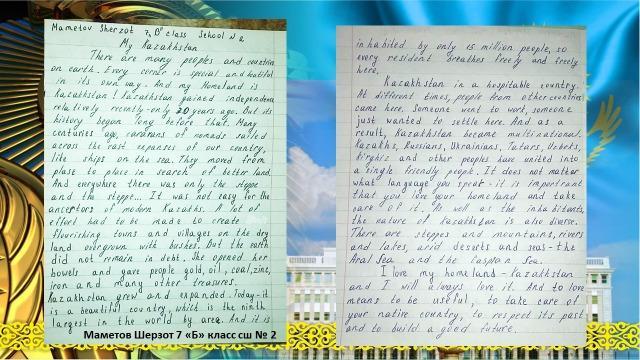 Mametov Sherzot 7 „B" class School № 2
My Kazakhstan
There are many peoples and countries
on earth. Every corner is special and beatiful
in its own way. And my Homeland is
Kazakhstan! Kazakhstan gained independence
relatively recently-only 20 years ago. But its
history began long before that. Many
centuries ago, caravans of nomads sailed
across the vast expanses of our country,
like ships on the sea. They moved from
plase to place in search of better land.
And everywhere there was only the steppe
and the steppe... It was not easy for the
ancestors of modern Kazakhs. A lot of
effort had to be made to create
flourishing towns and villages on the dry
land overgrown with bushes. But the earth
did not remain in debt. She opened her
bowels and gave people gold, oil, coal, zinc,
iron and many other treasures.
Kazakhstan grew and expanded. Today-it
is a beautiful country, which is the ninth
largest in the world by area. And it is
Маметов Шерзот 7 «Б» класс сш № 2
inhabited by only 15 million people, so
every resident breathes freely and freely
here.
Kazakhstan is a hospitable country.
At different times, people from other countries
came here. Someone went to work, someone
just wanted to settle here. And as a
result, Kazakhstan became multinational.
Kazakhs, Russians, Ukrainians, Tatars, Uzbeks,
Kirghiz and other peoples have united into
a single friendly people. It does not matter
what language you speak - it is important
that you love your homeland and take
care of it. As well as the inhabitants,
the nature of Kazakhstan is also diverse.
There are steppes and mountains, rivers
and lakes, arid deserts and seas - the
Aral Sea and the Caspian Sea.
I love my homeland - Kazakhstan
and I will always love it. And to love
means to be useful, to take care of
your native country, to respect its past
and to build a good future.